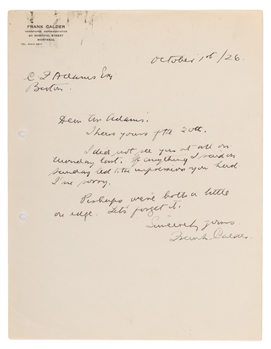 FRANK CALDER
MONTREAL
October 1st/26
C F Adams Esq
Boston
Dear Mr Adams.
I have yours of the 20th.
I did not see you at all on
Monday last. If anything I said on
Sunday led to the impression you had
I'm sorry.
Perhaps we're both a little
on edge. Let's forget it.
Sincerely yours
Frank Calder